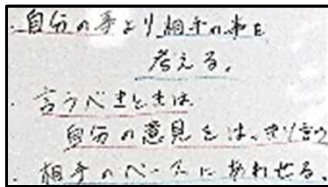 ・自分の事より相手の事を
考える。
・言うべきときは
自分の意見をはっきり言う
・相手のペースにあわせる。